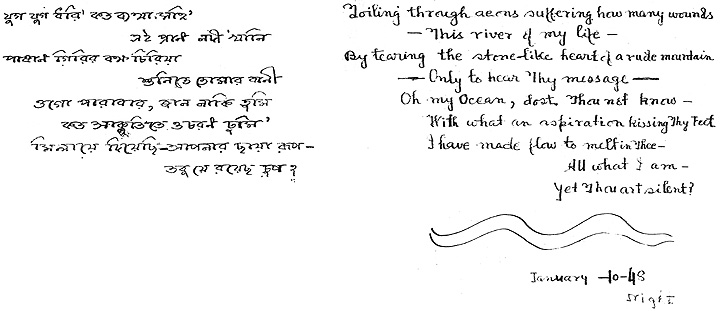 যুগ যুগ ধরি' কত ব্যথা সহি'
এই প্রাণ নদী খানি
পাষাণ গিরির বক্ষ চিরিয়া
শুনিতে তোমার বানী
ওগো পারাবার, জান নাকি তুমি
কত আকুতিতে ও চরণ চুমি'
মিলায়ে দিয়েছি—আপনার ছায়া রূপ—
তবু যে রয়েছ চুপ?
Toiling through aeons suffering how many wounds
— This river of my life —
By tearing the stone-like heart of a rude mountain
— Only to hear Thy message —
Oh my Ocean, dost Thou not know —
With what an aspiration kissing Thy Feet
I have made flow to melt in Thee—
All what I am —
Yet Thou art silent?
January —10-48